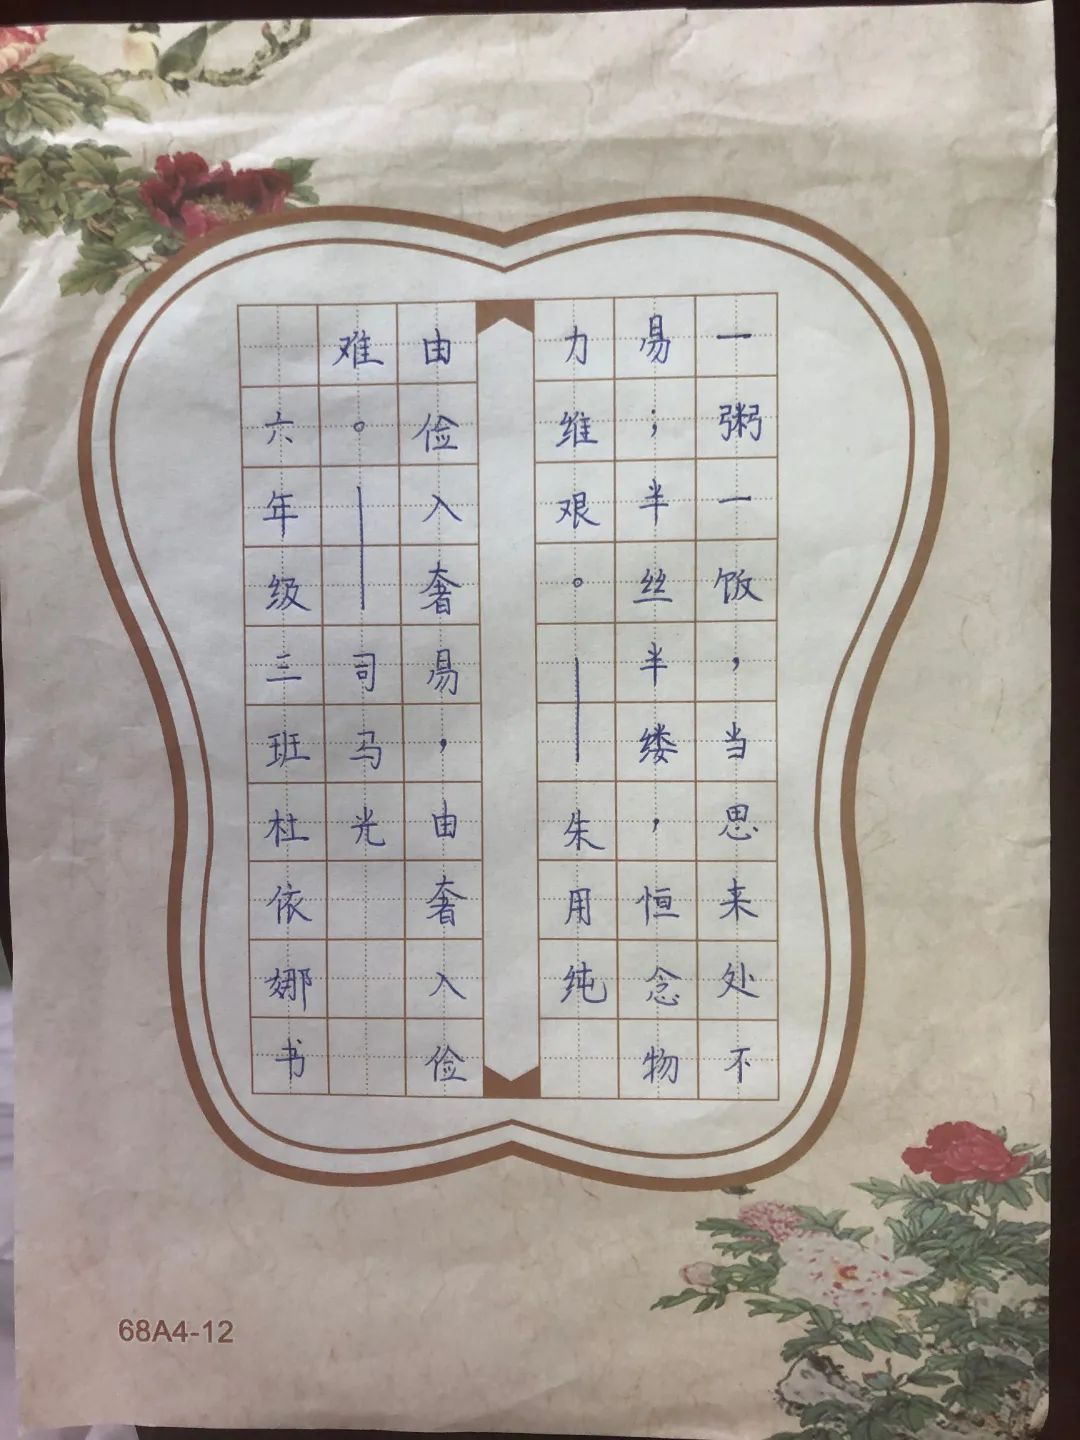 一粥一饭，当思来处不
易；半丝半缕，恒念物
力维艰。——朱用纯
由俭入奢易，由奢入俭
难。——司马光
六年级三班杜依娜书
68A4-12